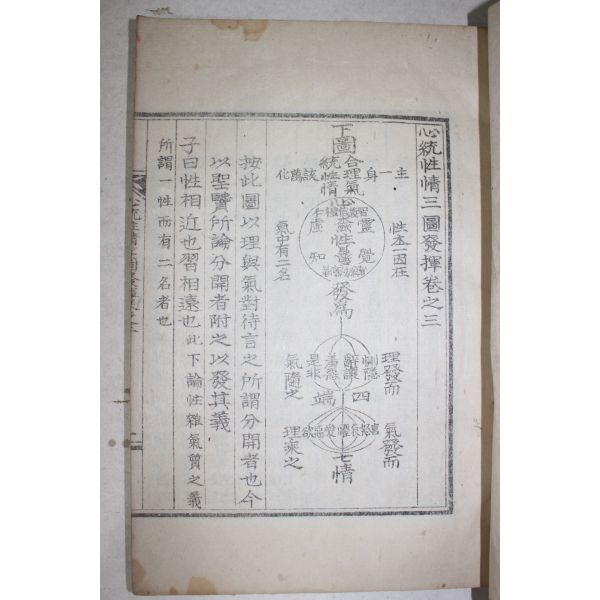 心統性情三圖發揮卷之三
下圖
主一身
合理氣
統性情
該萬化
心
靈覺
虛知
性
性本一因在
氣中有二名
發爲
理發而
惻隱
辭讓
羞惡
是非
氣隨之
四端
氣發而
喜怒哀懼愛惡欲
理乘之
七情
按此圖以理與氣對待言之所謂分開者也今
以聖賢所論分開者附之以發其義
子曰性相近也習相遠也此下論性雜氣質之義
所謂一性而有二名者也